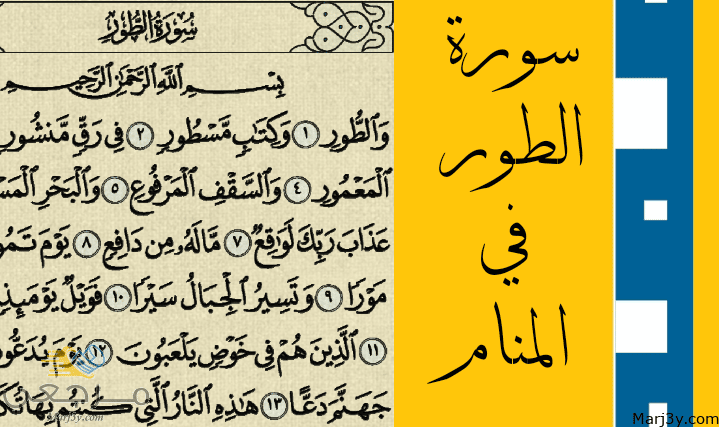 سُورَةُ الطُّورِ
بِسْمِ اللَّهِ الرَّحْمَٰنِ الرَّحِيمِ
وَالطُّورِ ١ وَكِتَابٍ مَّسْطُورٍ ٢ فِي رَقٍّ مَّنشُورٍ
الْمَعْمُورِ ٤ وَالسَّقْفِ الْمَرْفُوعِ ٥ وَالْبَحْرِ
عَذَابَ رَبِّكَ لَوَاقِعٌ ٧ مَّا لَهُ مِن دَافِعٍ ٨ يَوْمَ
مَوْرًا ٩ وَتَسِيرُ الْجِبَالُ سَيْرًا ١٠ فَوَيْلٌ يَوْمَئِذٍ
١١ الَّذِينَ هُمْ فِي خَوْضٍ يَلْعَبُونَ ١٢ يَوْمَ
جَهَنَّمَ دَعًّا ١٣ هَٰذِهِ النَّارُ الَّتِي كُنتُم بِهَا
مرجعي
Marj3y.com
سورة
الطور
في
المنام
Marj3y.com